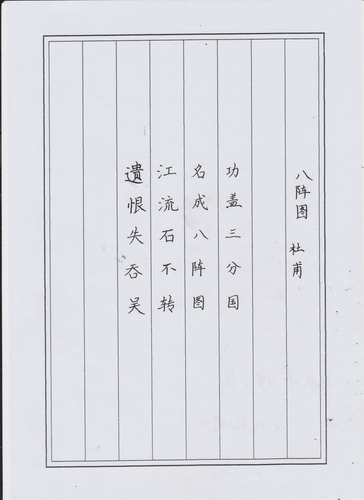 八阵图 杜甫
功盖三分国
名成八阵图
江流石不转
遗恨失吞吴